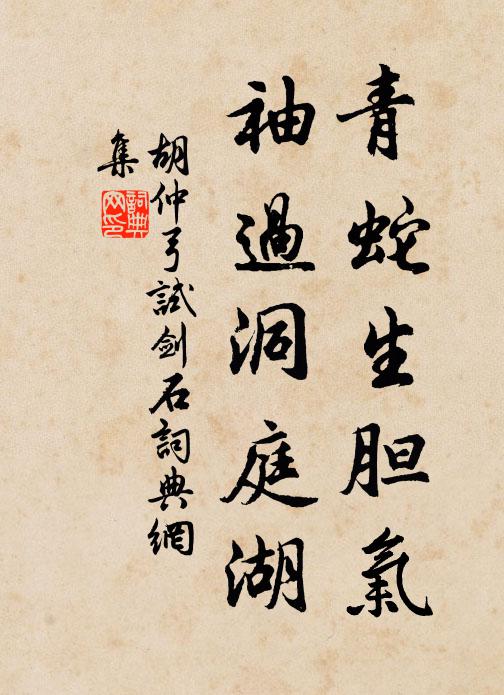 青蛇生胆氣
袖過洞庭湖
胡仲弓試劍石詞典網
集
詞典
网印